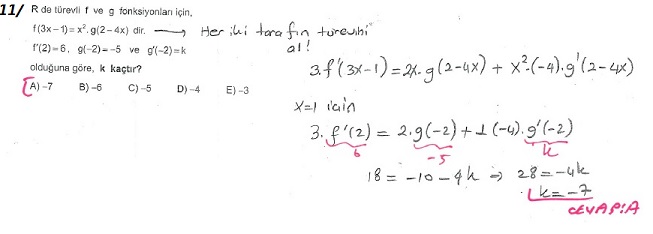 11/ R de türevli f ve g fonksiyonları için,
f(3x−1)=x².g(2−4x) dir. → Her iki tarafın türevini al!
f'(2)=6, g(−2)=−5 ve g'(−2)=k
olduğuna göre, k kaçtır?
A) −7 B) −6 C) −5 D) −4 E) −3
3.f'(3x−1)=2x.g(2−4x) + x².(−4).g'(2−4x)
x=1 için
3.f'(2) = 2.g(−2)+1(−4).g'(−2)
6 −5 k
18 = −10 −4k ⇒ 28=−4k
k=−7
CEVAP:A